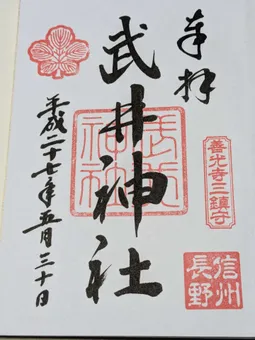 奉拝
善光寺三鎮守
信州
長野
武井神社
平成二十七年五月三十日